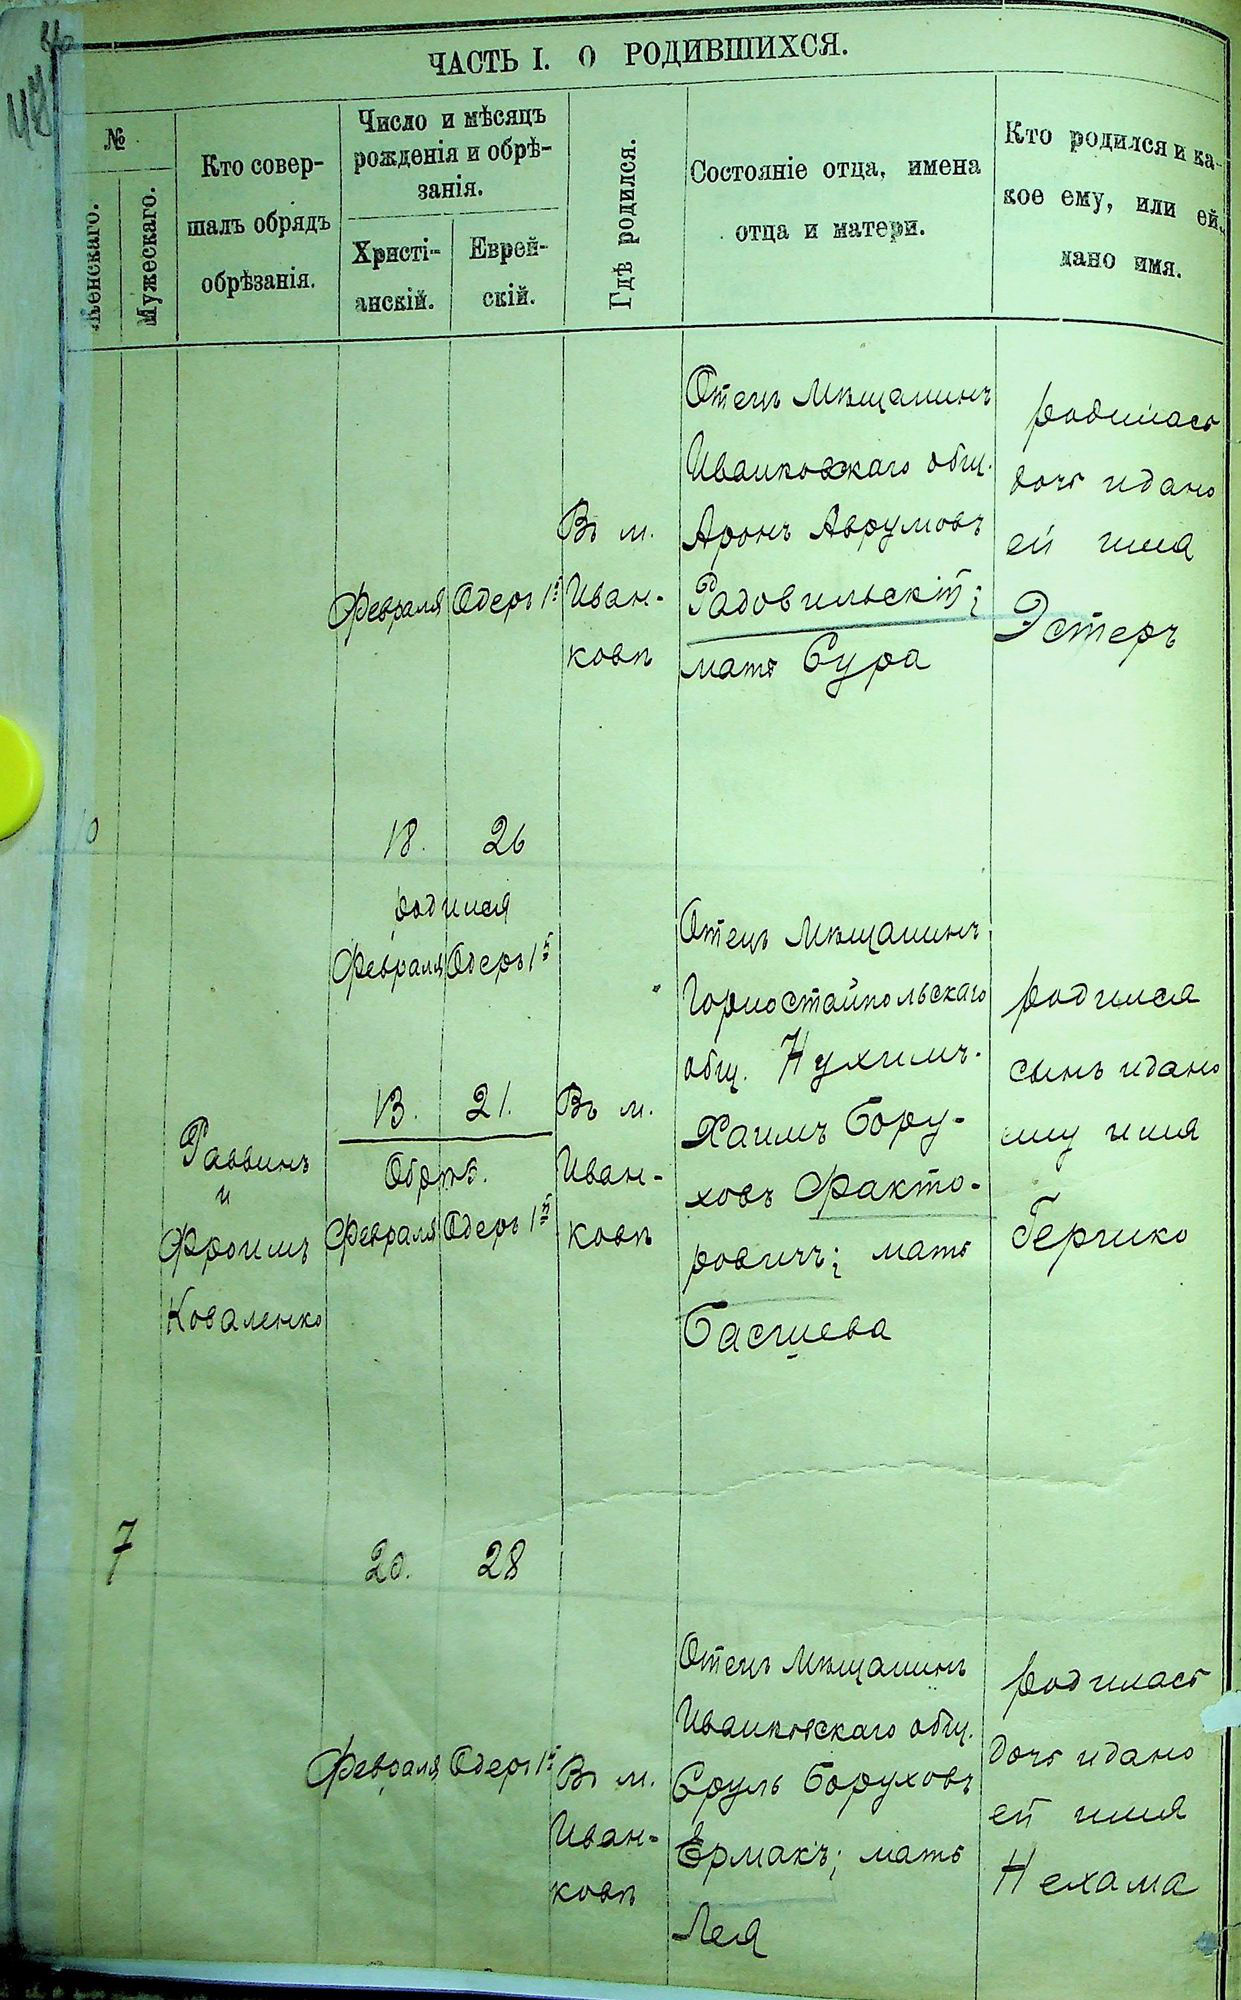 47
ЧАСТЬ I. О РОДИВШИХСЯ.
№
Женскаго.
Мужескаго.
Кто совер-
шалъ обрядъ
обрѣзанія.
Число и мѣсяцъ
рожденія и обрѣ-
занія.
Христі-
анскій.
Еврей-
скій.
Гдѣ родился.
Состояніе отца, имена
отца и матери.
Кто родился и ка-
кое ему, или ей,
дано имя.
Февраля
Одеръ 1й
Въ м.
Иван-
ковѣ
Отецъ Мѣщанинъ
Иванковскаго общ.
Аронъ Аврумовъ
Радовильскій;
мать Сура
родилась
дочь и дано
ей имя
Эстеръ
10
18.
26
родился
Февраля
Одеръ 1й
13.
21.
Обрѣз.
Февраля
Одеръ 1й
Раввинъ
и
Фроимъ
Коваленко
Въ м.
Иван-
ковѣ
Отецъ Мѣщанинъ
Горностайпольскаго
общ. Нухимъ-
Хаимъ Бору-
ховъ Факто-
ровичъ; мать
Басшева
родился
сынъ и дано
ему имя
Гершко
7
20.
28
Февраля
Одеръ 1й
Въ м.
Иван-
ковѣ
Отецъ Мѣщанинъ
Иванковскаго общ.
Сруль Боруховъ
Ермакъ; мать
Лея
родилась
дочь и дано
ей имя
Нехама